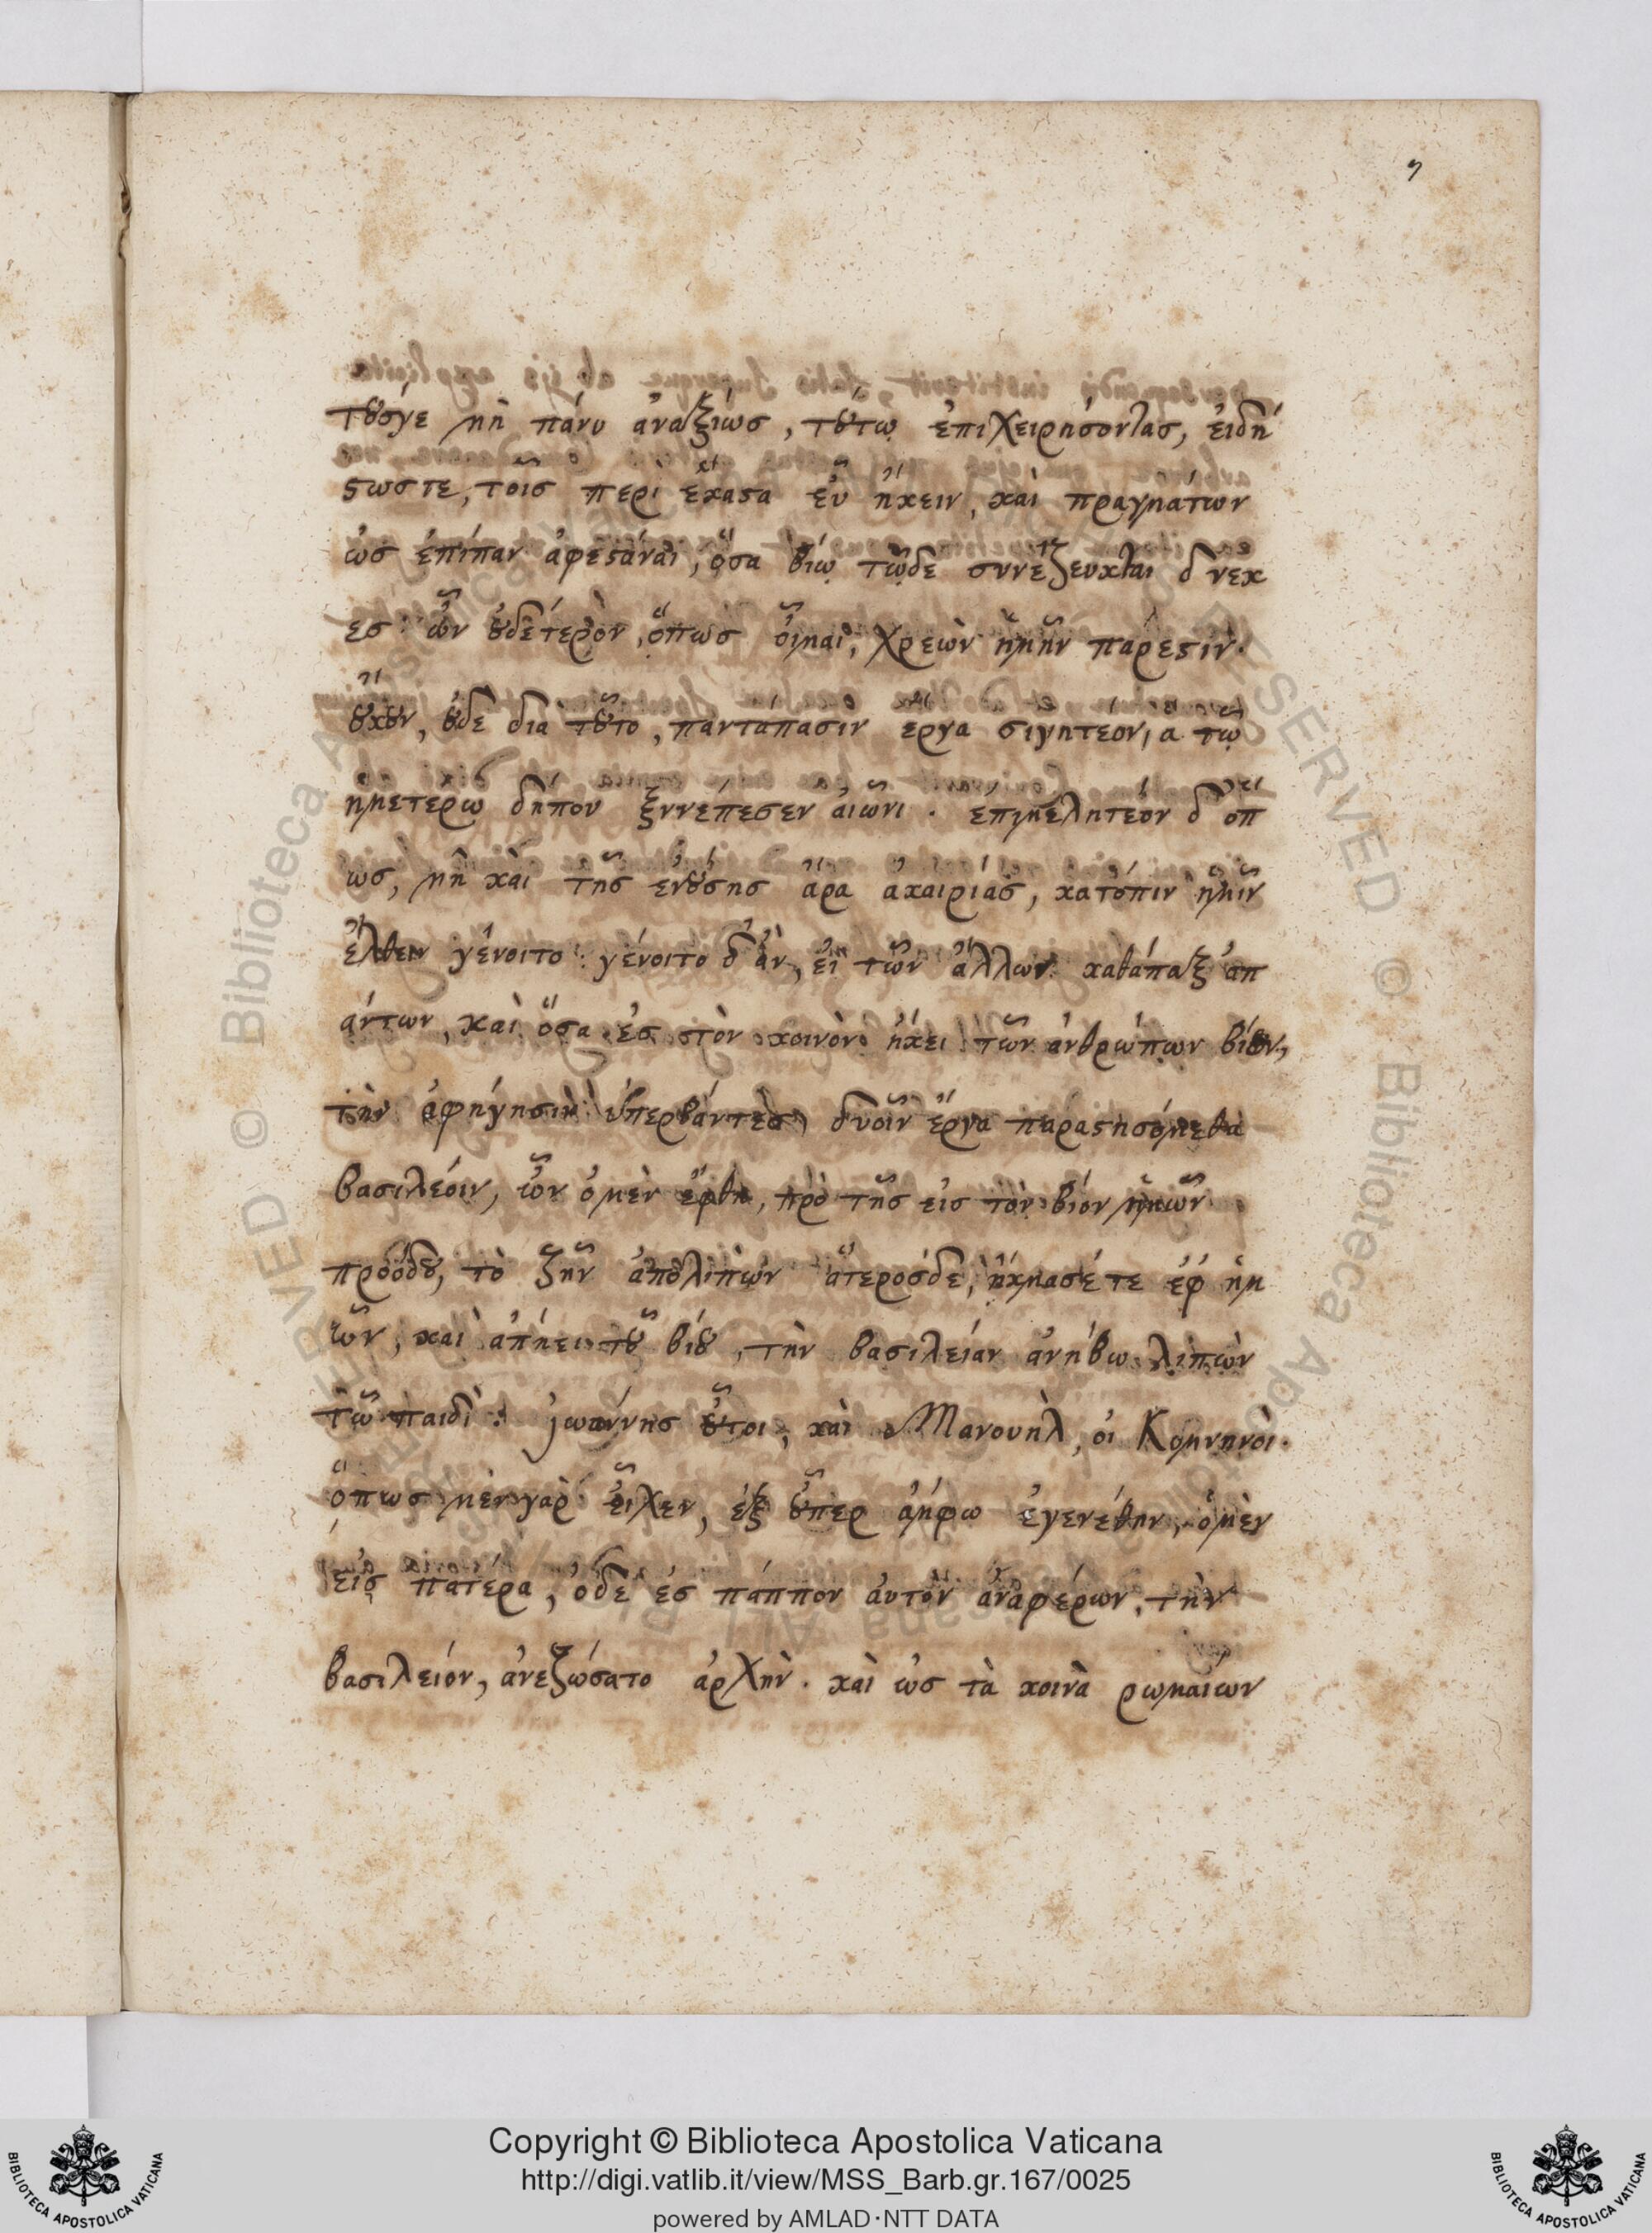 9
τȣσγε μὴ πάνυ ἀναξίωσ, τȣ́τῳ ἐπιχειρήσονίας, ἐιδή
ϛωστε, τοῖσ περὶ ἕκαϛα ἐῦ ἥκειν, καὶ πραγμάτων
ὡσ ἐπίπαν ἀφεϛάναι, ὅσα βίῳ τῷδε συνέζευκται δ νεκ
εσ ὧν ȣ̓δέτερὸν, ὅπωσ οἶμαι, χρεὼν ἡμῖν πάρεϛιν.
ȣ̓κȣν, ȣ̓δε δια τȣ͂το, παντάπασιν ἔργα σιγητέον, ἅ τῷ
ἡμετέρω δήπου ξυνέπεσεν αἰῶνι. ἐπιμελητέον δ ὅπ
ωσ, μὴ καὶ τῆς ἐνȣ́σησ ἄρα ἀκαιρίας, κατόπιν ἡμῖν
ἐλθειν γένοιτο: γένοιτο δ' ἂν, ἐὶ τῶν ἄλλων καθάπαξ ἁπ
άντων, καὶ ὅσα ἐσ στὸν κοινὸν ἥκει τῶν ἀνθρώπων βίον,
τὴν ἀφήγησιν ὑπερβάντεσ, δυοῖν ἔργα παραϛησόμεθα
βασιλέοιν, ὧν ὁμὲν ἔφθη, πρὸ τῆσ εἰσ τὸν βίον ἡμῶν
προόδȣ, τὸ ζῆν ἀπολιπὼν ἅτεροσδὲ, ἤκμασέ τε ἐφ ἡμ
ῶν, καὶ ἀπῄει τȣ͂ βίȣ, τὴν βασιλείαν ἀνήβω λιπὼν
τῷ παιδὶ: ἰωάννησ ȣ̓͂τοι, καὶ Μανουὴλ, οἱ Κομνηνοὶ.
ὅπωσ μὲν γὰρ εἶχεν, ἐξ ȣ̓͂περ ἄμφω ἐγενέσθην, ὁμὲν
εἰς πατέρα, ὁδὲ ἐσ πάππον ἀυτὸν ἀναφέρων, τὴν
βασίλειόν, ἀνεζώσατο ἀρχὴν. καὶ ὡσ τὰ κοινὰ ρωμαίων
Copyright © Biblioteca Apostolica Vaticana
http://digi.vatlib.it/view/MSS_Barb.gr.167/0025
powered by AMLAD·NTT DATA
BIBLIOTECA APOSTOLICA VATICANA
BIBLIOTECA APOSTOLICA VATICANA